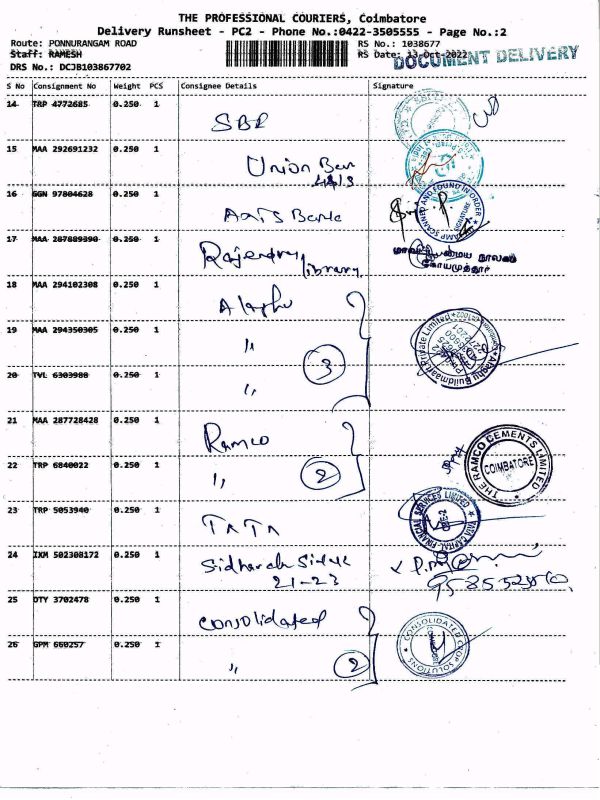 THE PROFESSIONAL COURIERS, Coimbatore
Delivery Runsheet - PC2 - Phone No.:0422-3505555 - Page No.:2
Route: PONNURANGAM ROAD RS No.: 1038677
Staff: RAMESH RS Date: 13-Oct-2022
DOCUMENT DELIVERY
DRS No.: DCJB103867702
S No Consignment No Weight PCS Consignee Details Signature
14 TRP 4772685 0.250 1 SBI
15 MAA 292691232 0.250 1 Union Ban
16 GGN 97804628 0.250 1 Axis Bank
STAMP SCANNED AND FOUND IN ORDER
SIGNATURE
17 MAA 287889390 0.250 1 Rajendra library
நூலகம்
கோயமுத்தூர்
18 MAA 294102308 0.250 1
19 MAA 294350305 0.250 1 "
3
Buildmaart Private Limited
20 TVL 6303980 0.250 1 "
21 MAA 287728428 0.250 1 Ramco
THE RAMCO CEMENTS LIMITED
COIMBATORE
22 TRP 6840022 0.250 1 "
2
23 TRP 5053940 0.250 1 TATA
TATA CAPITAL FINANCIAL SERVICES LIMITED
CBE-2
24 IXM 502308172 0.250 1
21-23
25 DTY 3702478 0.250 1 Consolidated
CONSOLIDATED CROP SOLUTIONS
26 GPM 660257 0.250 1 "
2